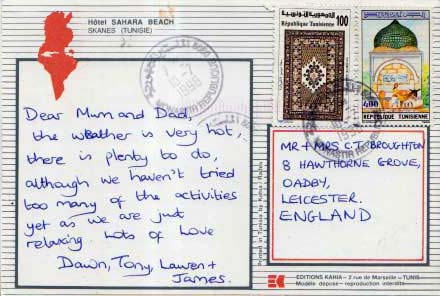 Hôtel SAHARA BEACH
SKANES (TUNISIE)
100
République Tunisienne
400
REPUBLIQUE TUNISIENNE
Dear Mum and Dad,
the weather is very hot,
there is plenty to do,
although we haven't tried
too many of the activities
yet as we are just
relaxing Lots of Love
Dawn, Tony, Lauren +
James.
MR + MRS C.T. BROUGHTON
8 HAWTHORNE GROVE,
OADBY,
LEICESTER.
ENGLAND
Printed in Tunisia by Kahia
EDITIONS KAHIA – 2 rue de Marseille – TUNIS
Modèle déposé - reproduction interdite